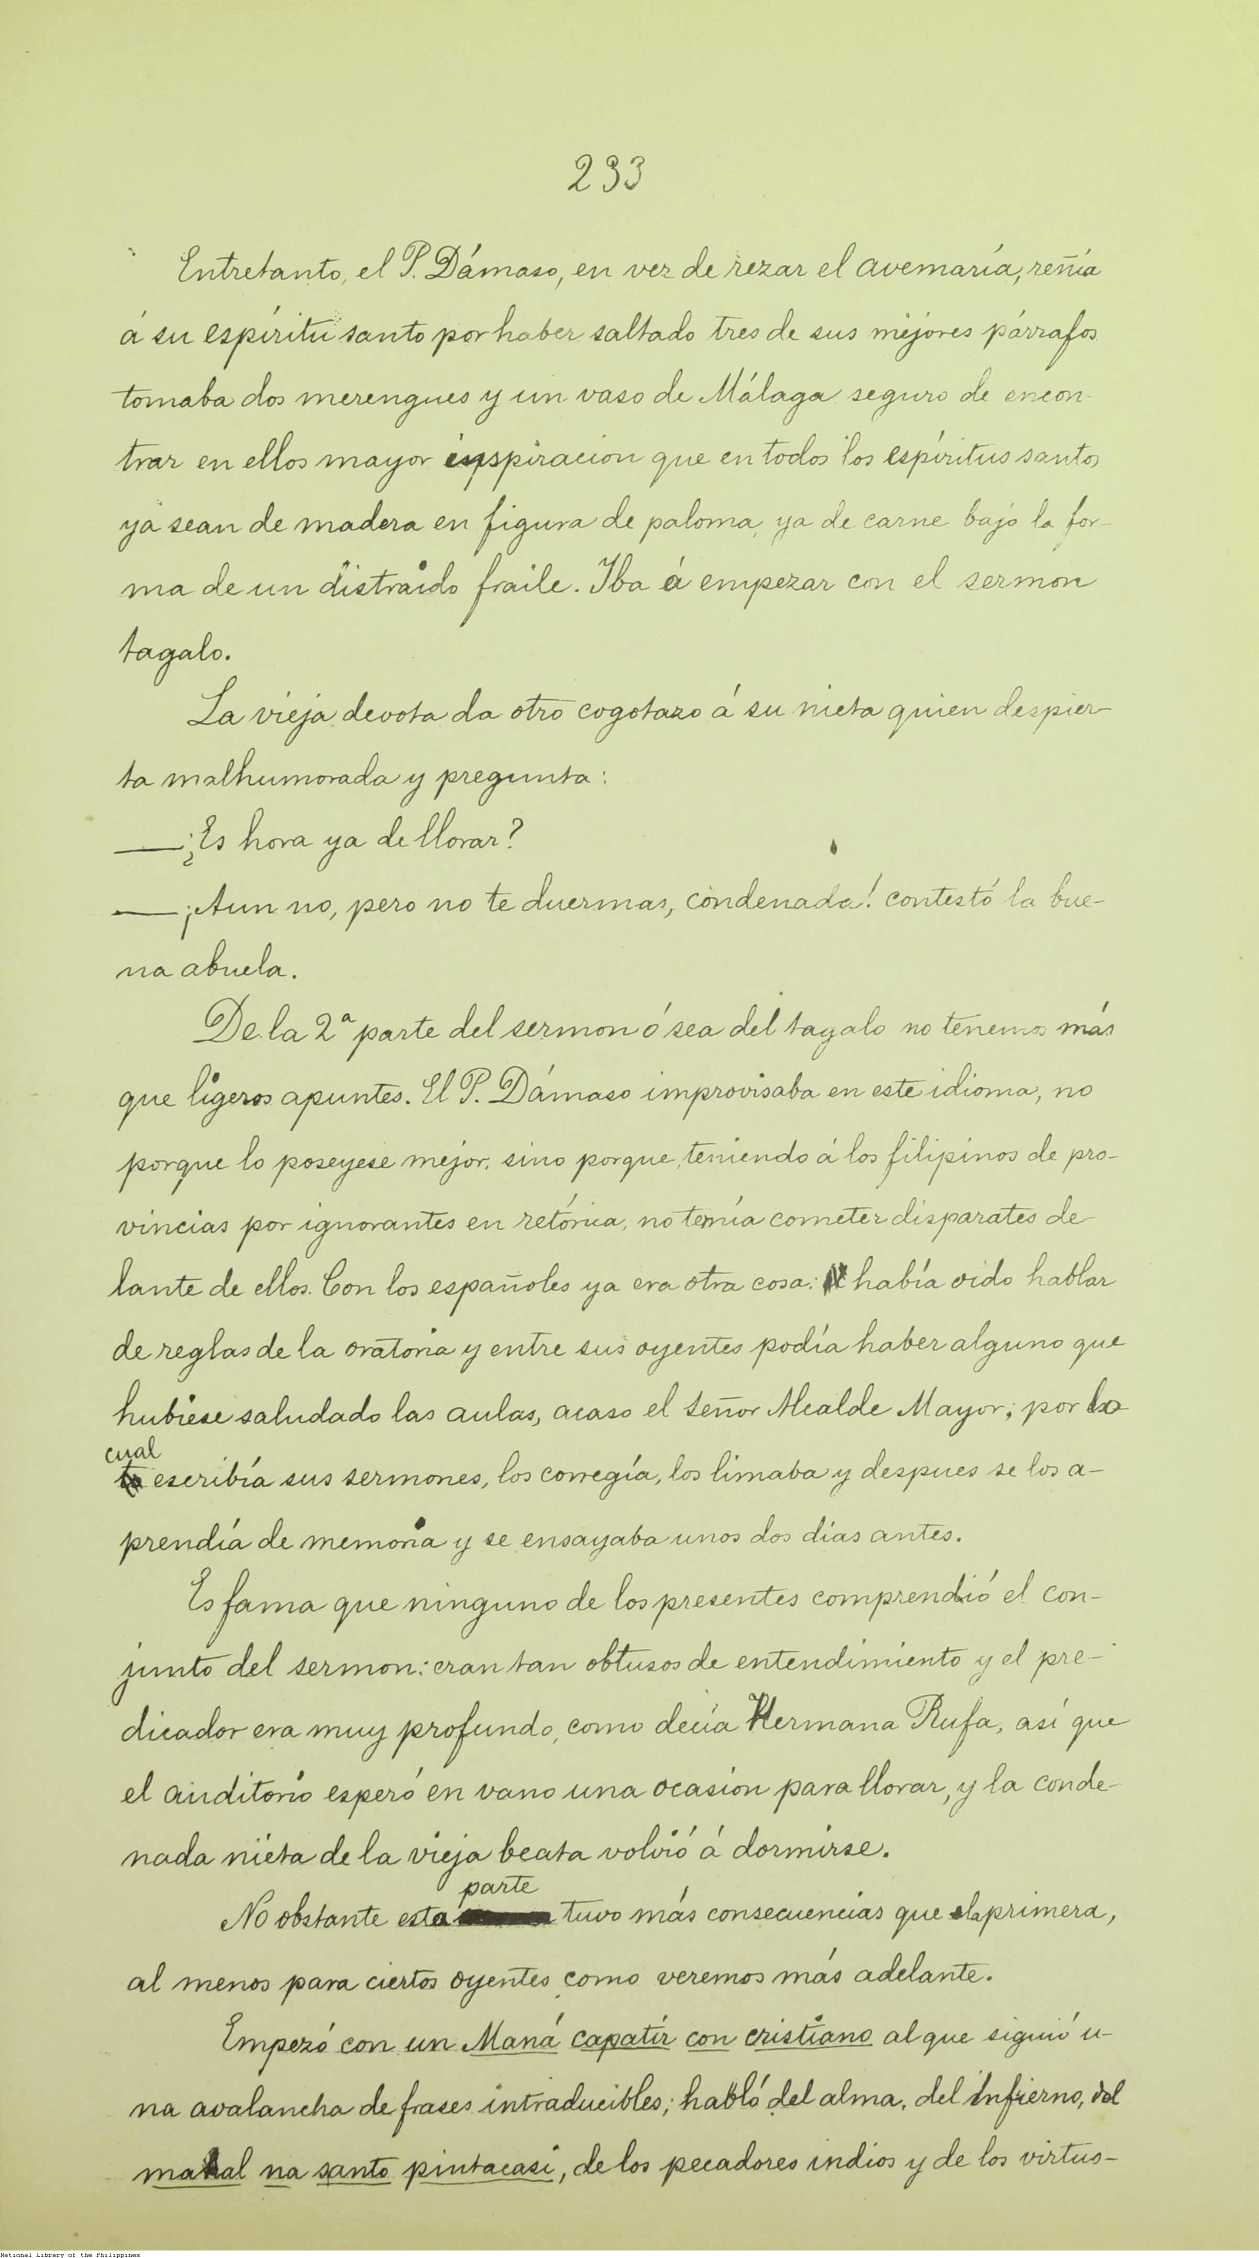 233
Entretanto, el P. Dámaso, en vez de rezar el avemaría, reñía
á su espíritu santo por haber saltado tres de sus mejores párrafos
tomaba dos merengues y un vaso de Málaga seguro de encon-
trar en ellos mayor inspiracion que en todos los espíritus santos
ya sean de madera en figura de paloma, ya de carne bajo la for-
ma de un distraido fraile. Iba á empezar con el sermon
tagalo.
La vieja devota da otro cogotazo á su nieta quien despier-
ta malhumorada y pregunta:
—¿Es hora ya de llorar?
—¡Aun no, pero no te duermas, condenada! contestó la bue-
na abuela.
De la 2ª parte del sermon ó sea del tagalo no tenemos más
que ligeros apuntes. El P. Dámaso improvisaba en este idioma, no
porque lo poseyese mejor, sino porque, teniendo á los filipinos de pro-
vincias por ignorantes en retórica, no temía cometer disparates de-
lante de ellos. Con los españoles ya era otra cosa: había oido hablar
de reglas de la oratoria y entre sus oyentes podía haber alguno que
hubiese saludado las aulas, acaso el señor Alcalde Mayor; por lo
cual
escribía sus sermones, los corregía, los limaba y despues se los a-
prendía de memoria y se ensayaba unos dos días antes.
Es fama que ninguno de los presentes comprendió el con-
junto del sermon: eran tan obtusos de entendimiento y el pre-
dicador era muy profundo, como decía Hermana Rufa, así que
el auditorio esperó en vano una ocasion para llorar, y la conde-
nada nieta de la vieja beata volvió á dormirse.
parte
No obstante esta tuvo más consecuencias que la primera,
al menos para ciertos oyentes como veremos más adelante.
Empezó con un Maná capatir con cristiano al que siguió u-
na avalancha de frases intraducibles; habló del alma, del Infierno, del
mahal na santo pintacasi, de los pecadores indios y de los virtuo-
National Library of the Philippines